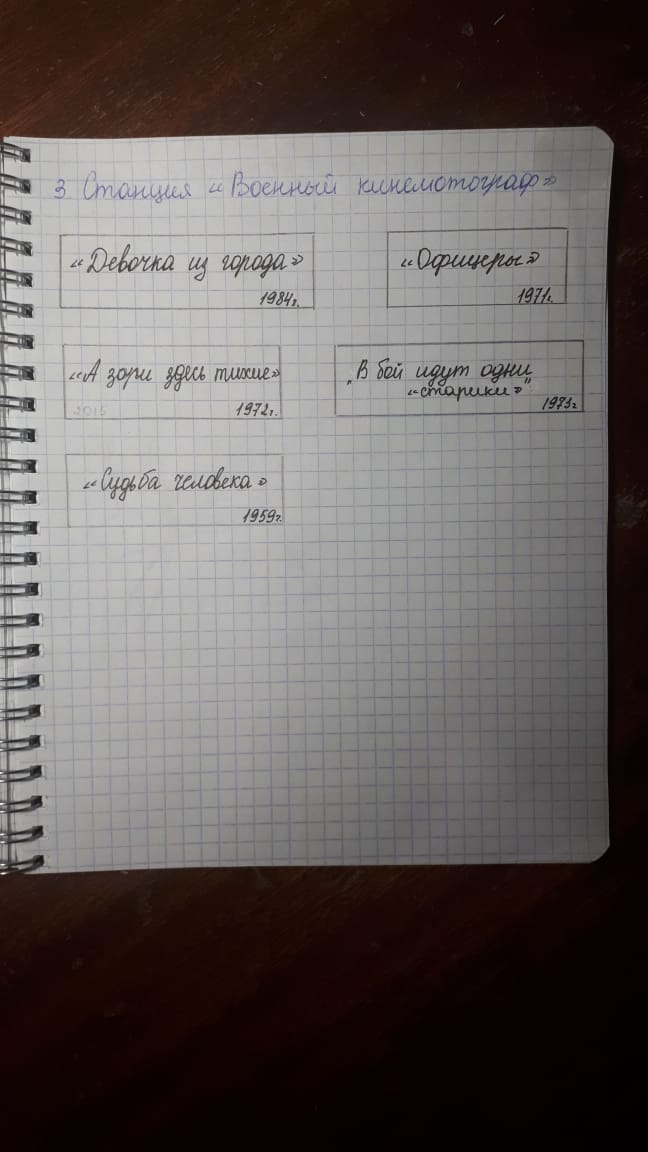 3. Станция «Военный кинемотограф»
«Девочка из города»
1984г.
«Офицеры»
1971г.
«А зори здесь тихие»
2015
1972г.
„В бой идут одни
«старики»"
1973г
«Судьба человека»
1959г.